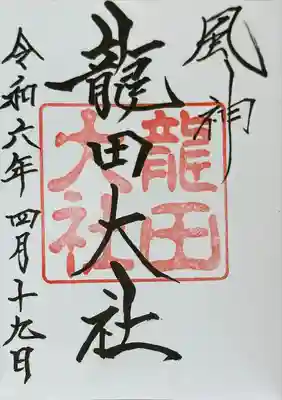 風神
龍田大社
龍田
大社
令和六年 四月十九日